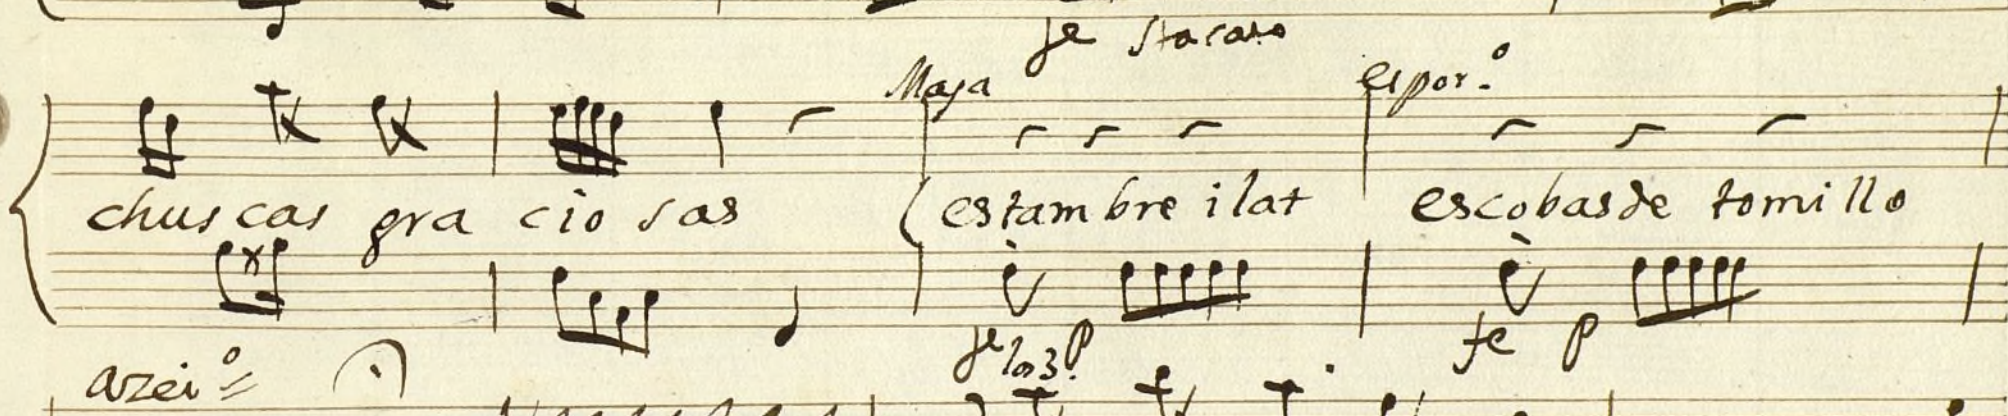 fe stacato
Maja espor.º
chuscas gra cio sas estambre ilat escobas de tomillo
fe los 3. p fe p
azei.º